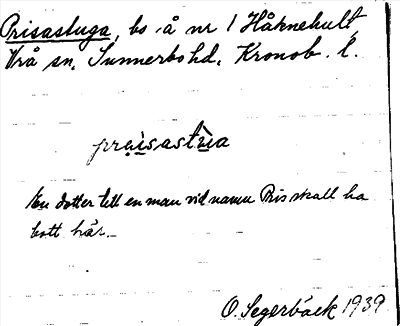 Prisastuga, bs å nr 1 Håknehult,
Vrå sn, Sunnerbo hd, Kronob. l.
praisastùa
En dotter till en man vid namn Pris skall ha
bott här.
O. Segerbäck 1939